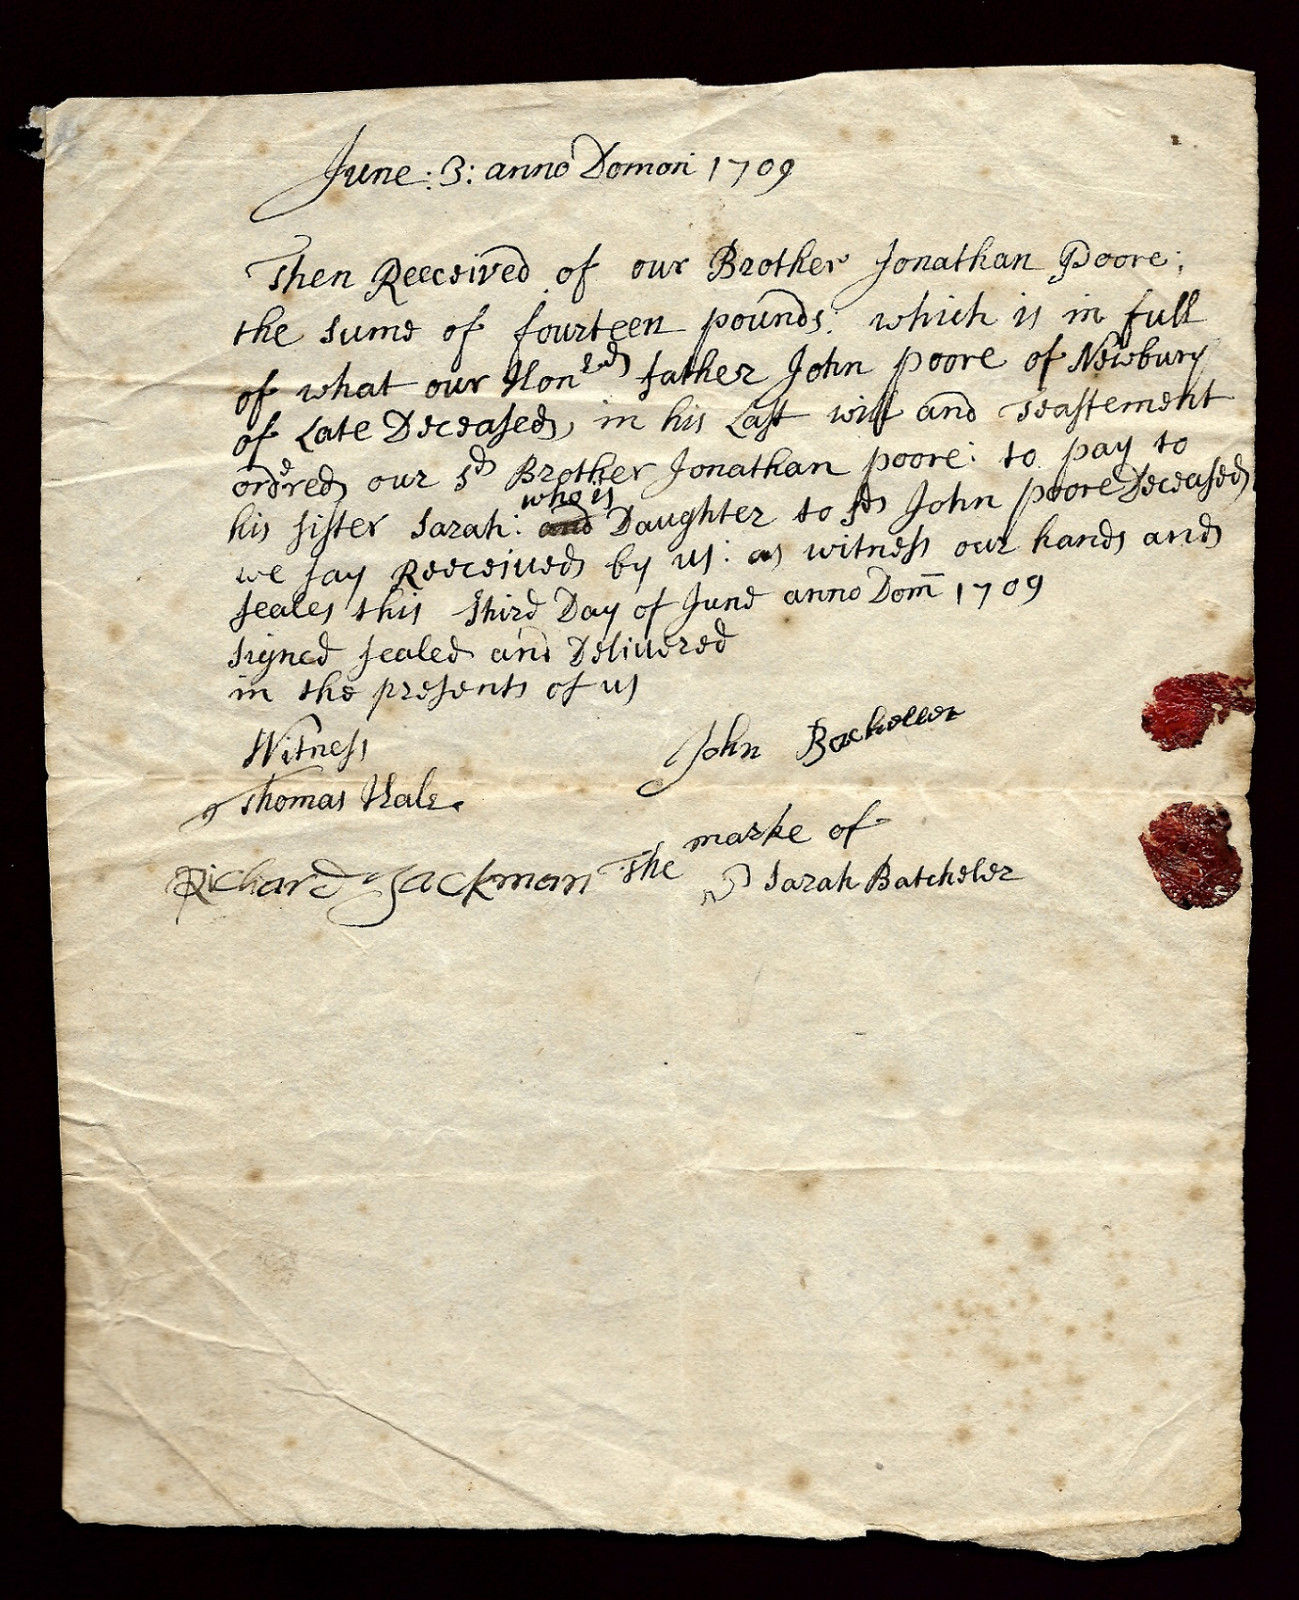 June : 3 : anno Domoni 1709
Then Receeived of our Brother Jonathan Poore ;
the sume of fourteen pounds : which is in full
of what our Honred father John poore of Newbury
of Late Deceased, in his Last will and Teastement
ordered our sd Brother Jonathan poore : to pay to
his sister Sarah : who is Daughter to sd John poore Deceased
we say Receeiued by us : as witness our hands and
seales this third Day of June anno Dom 1709
signed sealed and Deliuered
in the presents of us
Witness
John Bacheller
Thomas Hale.
The marke of
Richard Jackman
Sarah Batcheler